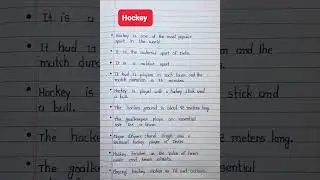 Hockey
Hockey is one of the most popular
sport in the world
It is the national sport of India.
It is a outdoor sport.
It had 11 players in each team and the
match duration is 75 minutes.
Hockey is played with a hockey stick and
a ball.
The hockey ground is about 92 meters long.
The goalkeeper plays an essential
role for a team.
Major Dhyan Chand Singh was a
national hockey player of India.
Hockey teaches us the value of team
work and team
Playing hockey makes us fit and
It is a
It had 11
match dura
Hockey is
a ball.
The hock
and the
stick and
2 meters long.